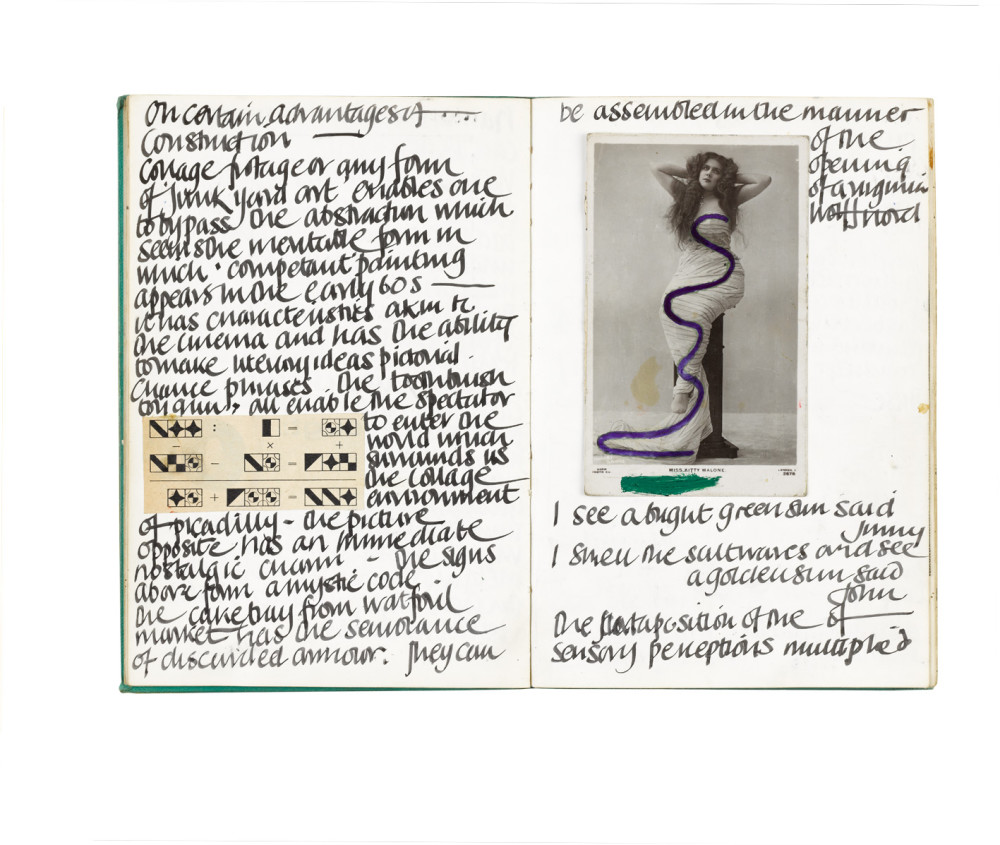 On certain advantages of ....
Construction
Collage potage or any form
of junk yard art enables one
to bypass the abstraction which
seems the inevitable form in
which competant painting
appears in the early 60s —
it has characteristics akin to
the cinema and has the ability
to make literary ideas pictorial.
Chance phrases the toothbrush
all enable the spectator
to enter the
world which
surrounds us
the collage
environment
of picadilly - the picture
opposite has an immediate
nostalgic charm - the signs
above form a mystic code
the cake tray from watford
market has the semblance
of discarded armour. They can
be assembled in the manner
of the
opening
of a virginia
MISS KITTY MALONE.
I see a bright green sun said
Jinny
I smell the salt waves and see
a golden sun said
John
the juxtaposition of the of
sensory perceptions multiplied